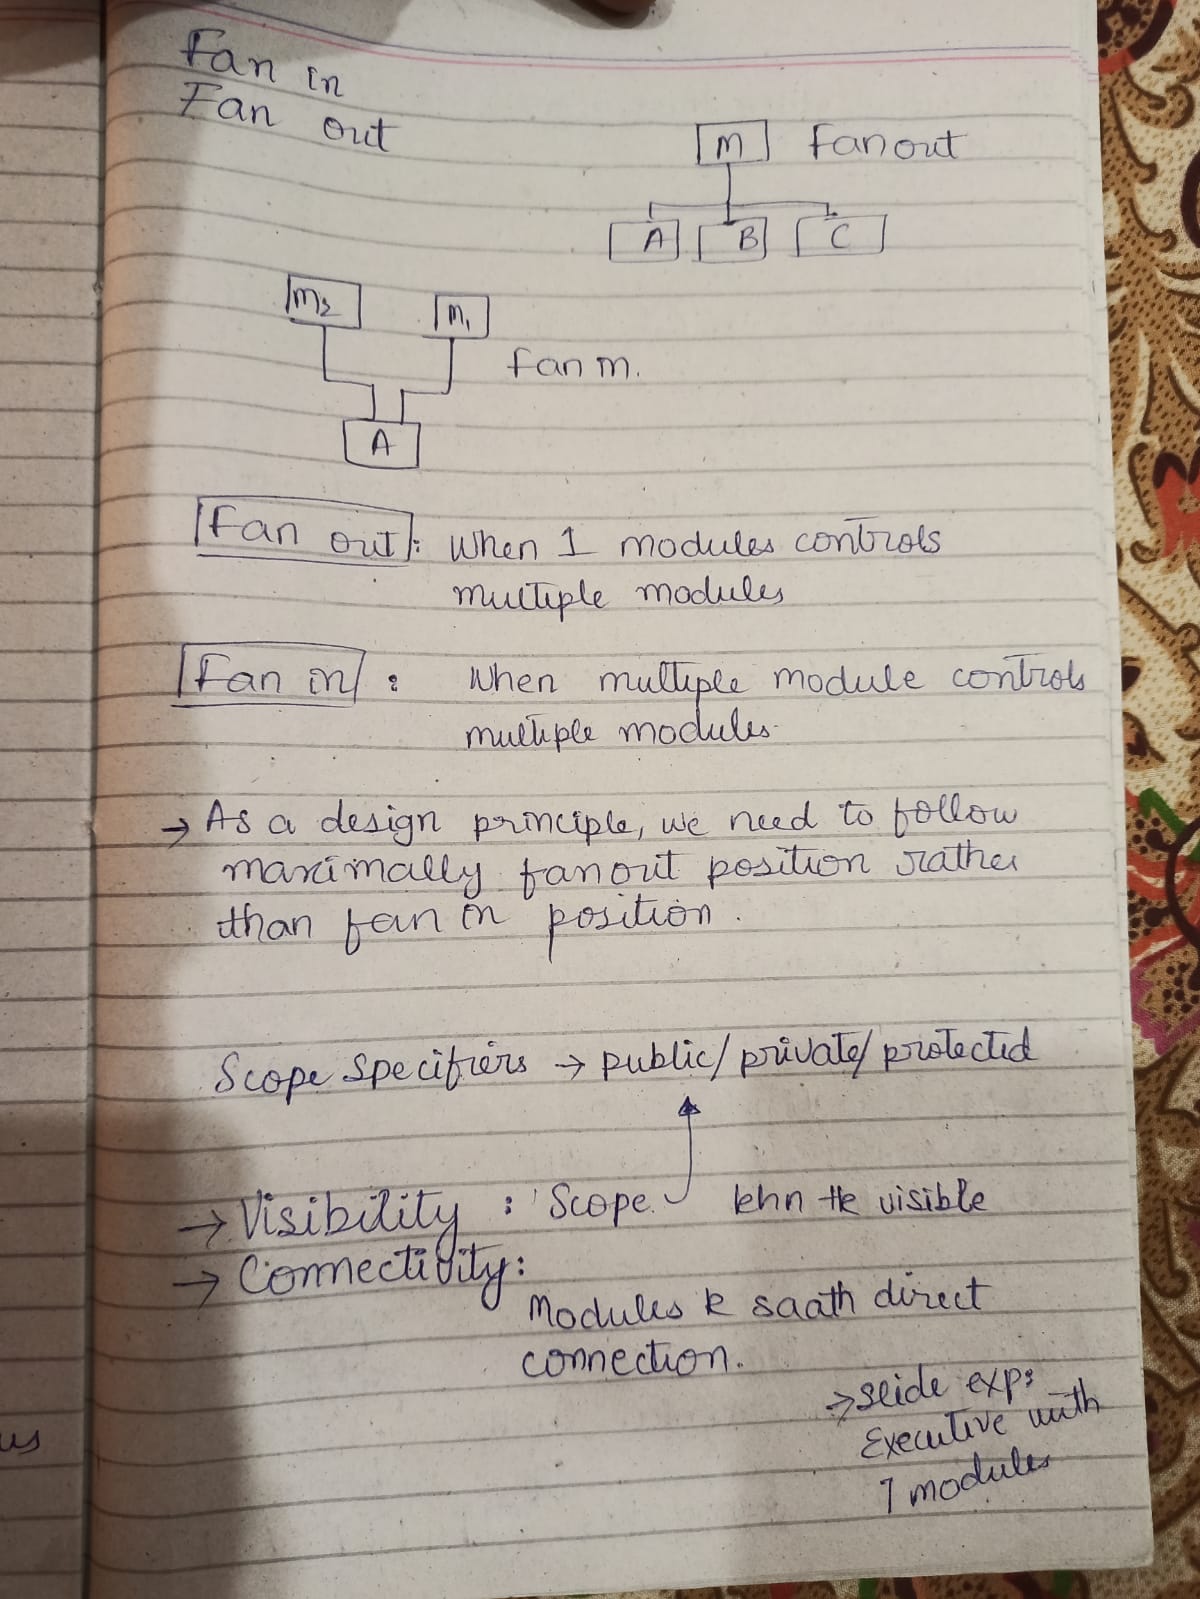 Fan in
Fan out
M Fanout
A B C
M2 M1
fan in.
A
Fan out : When 1 modules controls
multiple modules
Fan in : When multiple module controls
multiple modules.
→ As a design principle, we need to follow
maximally fanout position rather
than fan in position.
Scope Specifiers → public/private/protected
→ Visibility : Scope khn tk visible
→ Connectivity:
Modules k saath direct
connection.
→ slide exp:
Executive with
7 modules
us